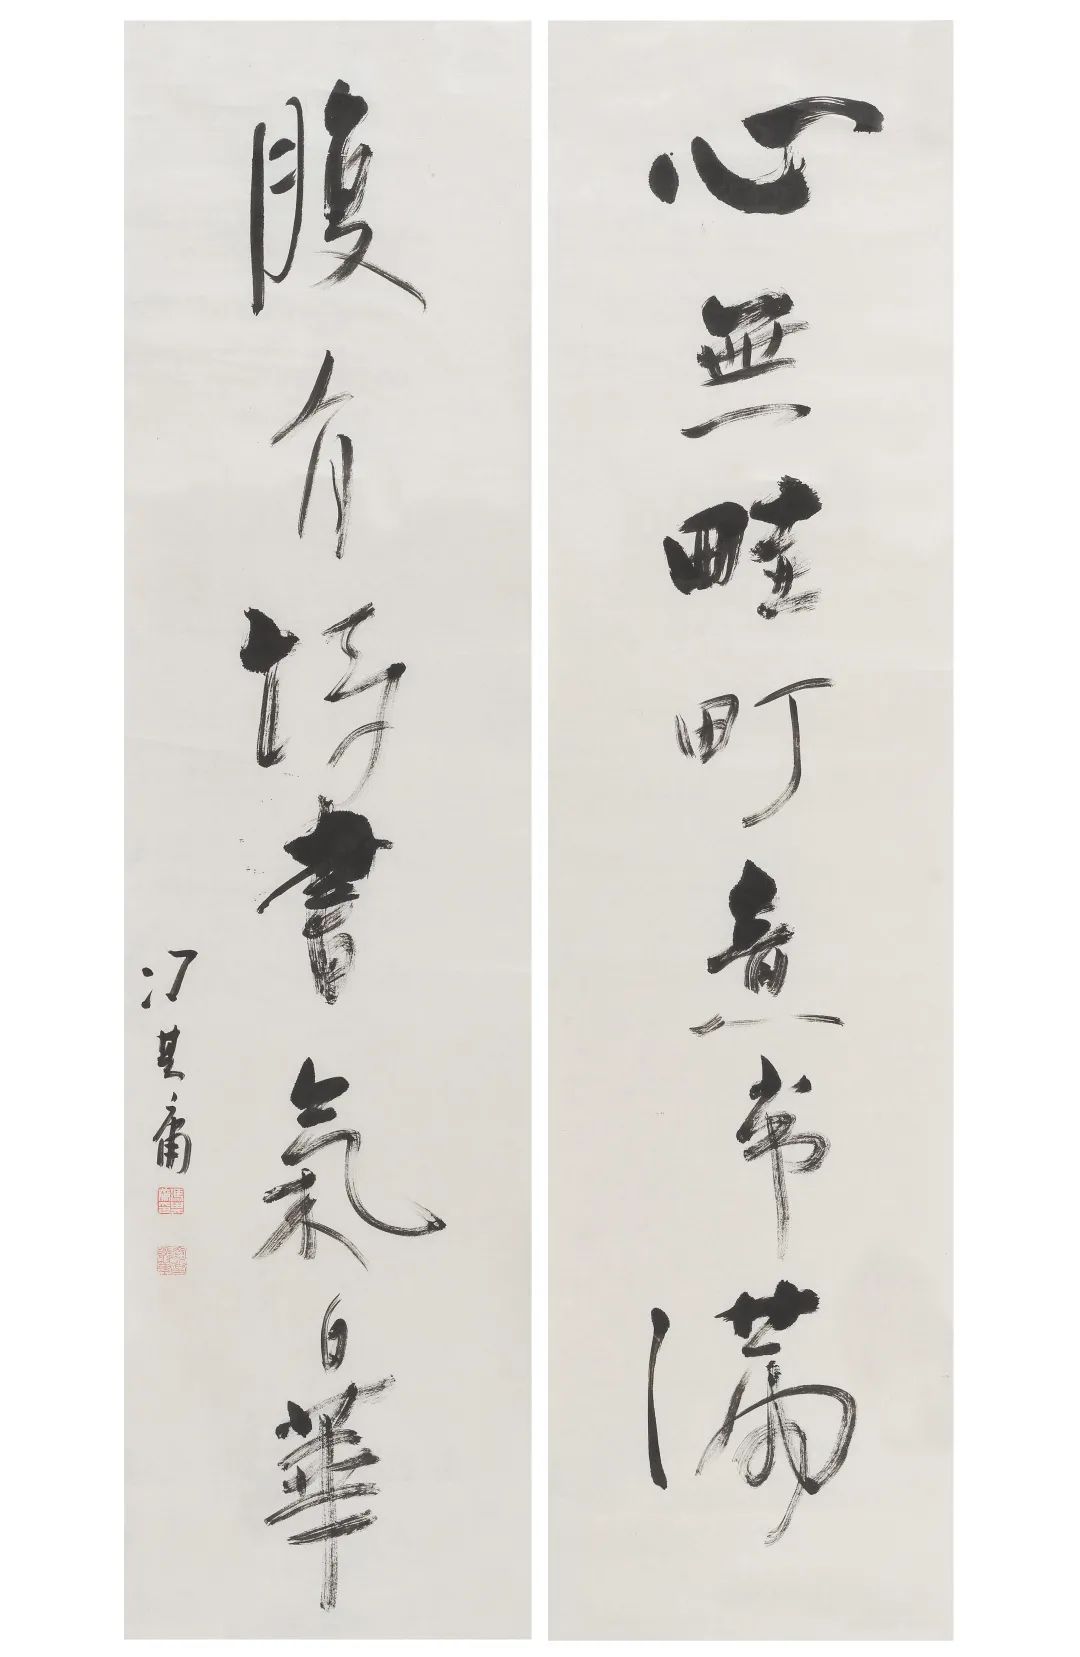 心無畦町意常滿
腹有詩書氣自華
冯其庸